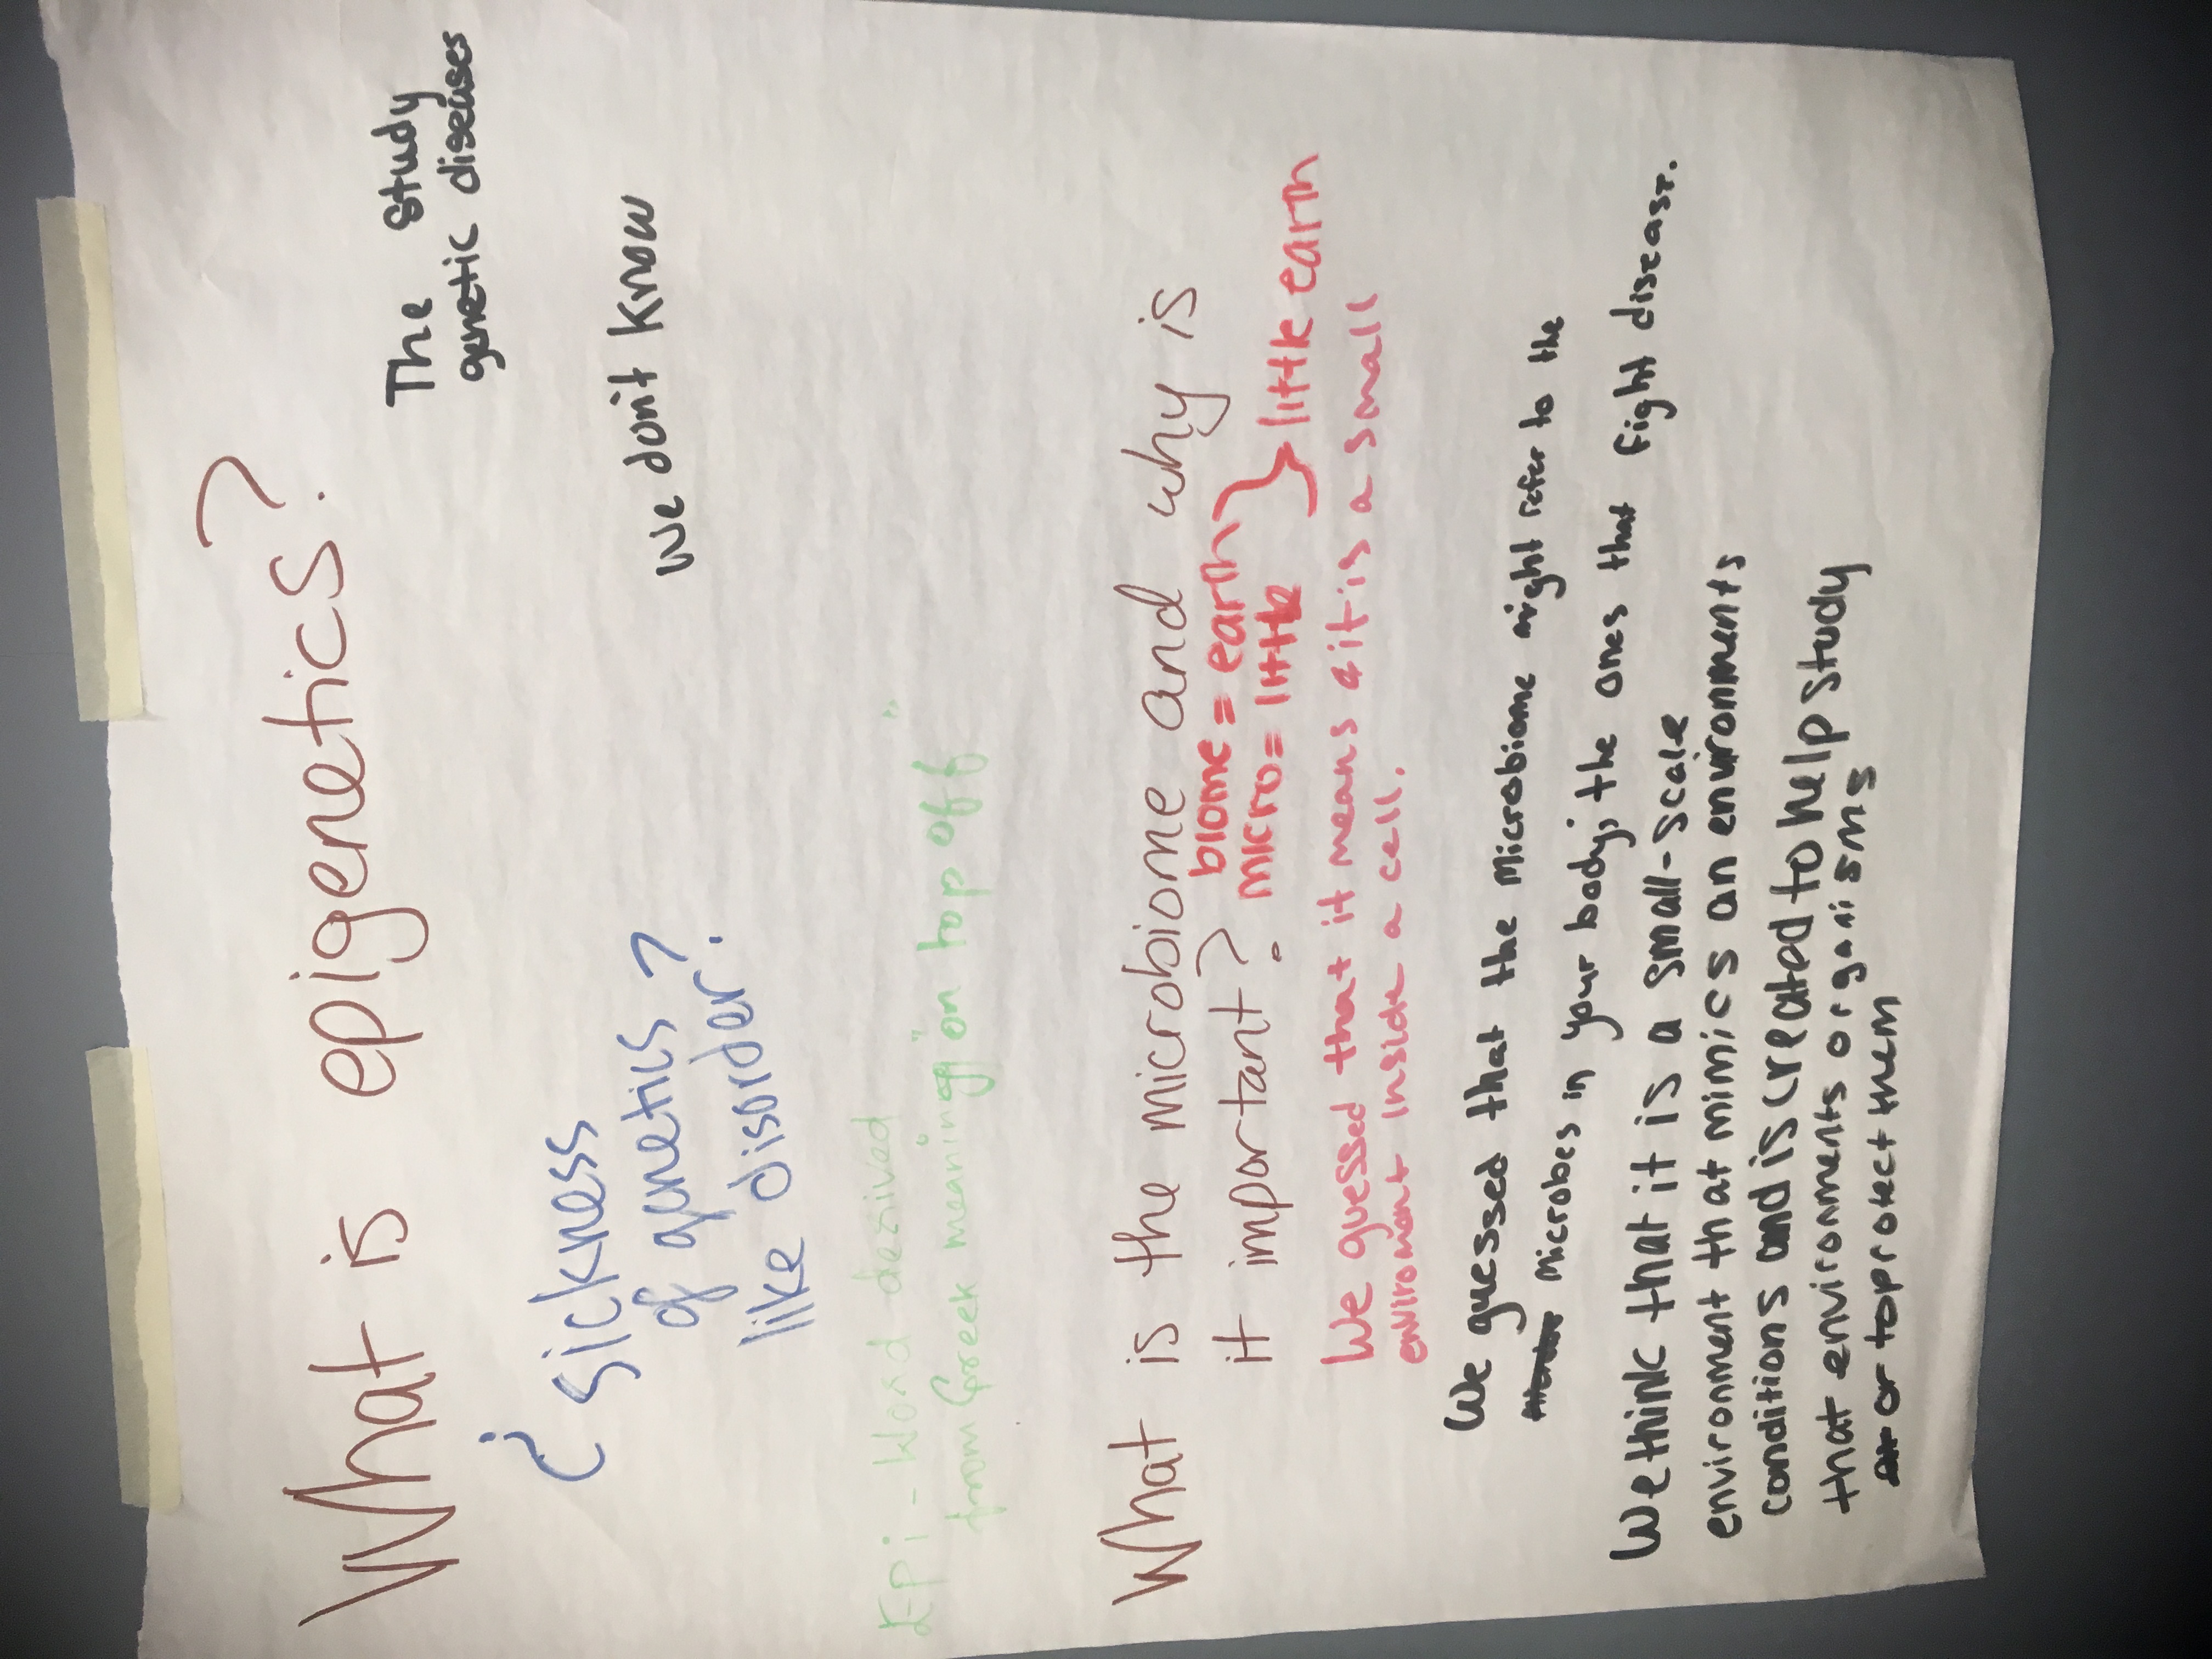 What is epigenetics?
The study
genetic diseases
¿ sickness
of genetics
like disorder?
We don't know
Epi - Word derived
from Greek meaning "on top off"
What is the microbiome and why is
it important?
biome = earth
micro = little
little earth
We guessed that it means it is a small
enviroment inside a cell.
We guessed that the Microbiome might refer to the
Microbes in your body; the ones that fight disease.
We think that it is a small-scale
environment that mimics an environments
conditions and is created to help study
that environments organisms
or to protect them